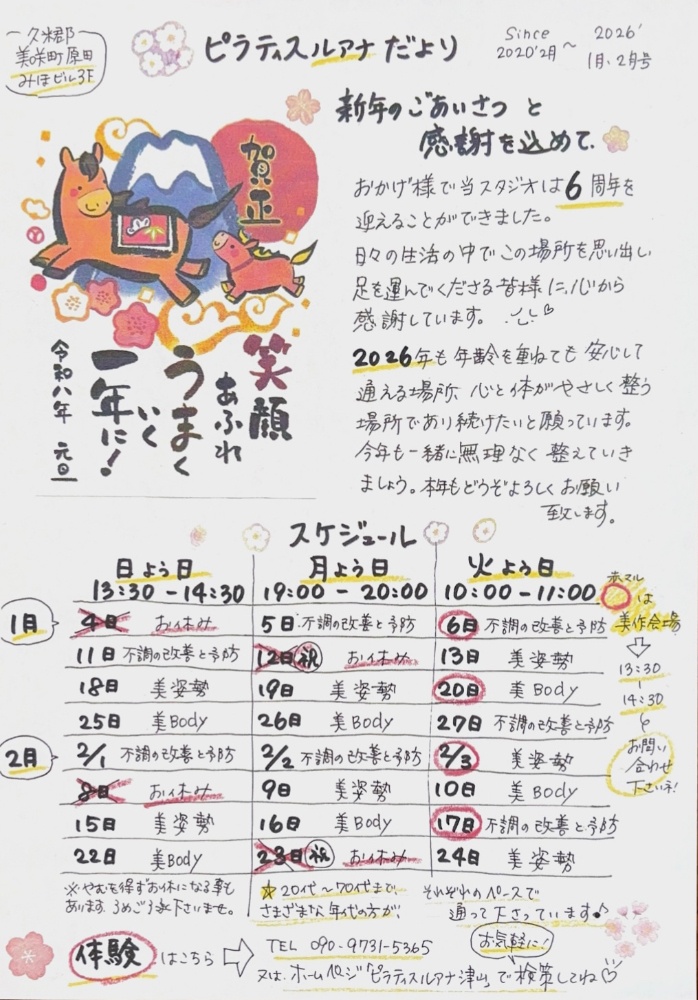 久米郡
美咲町原田
みほビル3F
ピラティスルアナだより
Since
2020'2月〜
2026'
1月、2月号
賀正
笑顔
あふれ
うまく
いく
一年に!
令和八年 元旦
新年のごあいさつ と
感謝を込めて、
おかげ様で当スタジオは6周年を
迎えることができました。
日々の生活の中でこの場所を思い出し
足を運んでくださる皆様に、心から
感謝しています。
2026年も年齢を重ねても安心して
通える場所、心と体がやさしく整う
場所であり続けたいと願っています。
今年も一緒に無理なく整えていき
ましょう。本年もどうぞよろしくお願い
致します。
スケジュール
日よう日 月よう日 火よう日
13:30 - 14:30 19:00 - 20:00 10:00 - 11:00
赤マル
○は
美作会場
13:30
|
14:30
お問い
合わせ
下さいネ!
1月 4日 お休み 5日 不調の改善と予防 6日 不調の改善と予防
11日 不調の改善と予防 12日 祝 お休み 13日 美姿勢
18日 美姿勢 19日 美姿勢 20日 美Body
25日 美Body 26日 美Body 27日 不調の改善と予防
2月 2/1 不調の改善と予防 2/2 不調の改善と予防 2/3 美姿勢
8日 お休み 9日 美姿勢 10日 美Body
15日 美姿勢 16日 美Body 17日 不調の改善と予防
22日 美Body 23日 祝 お休み 24日 美姿勢
※やむを得ずお休になる事も
あります。うめご了承下さいませ。
☆20代〜70代まで、
さまざまな年代の方が、
それぞれのペースで
通って下さっています♪
体験はこちら ⇨ TEL 090-9731-5365
お気軽に!
又は、ホームページ「ピラティスルアナ津山」で検索してね♡